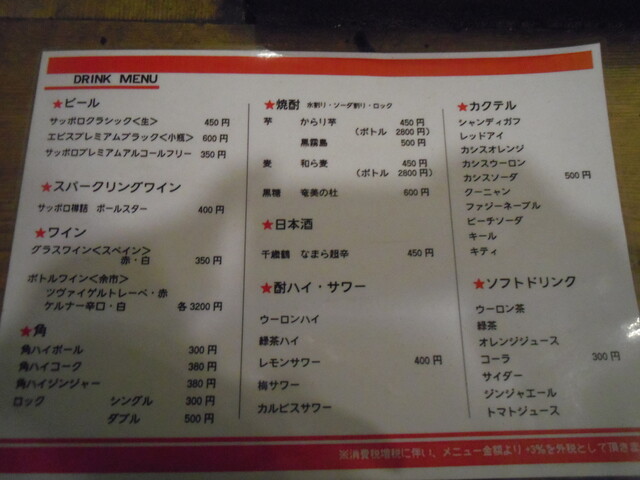 DRINK MENU
★ビール
サッポロクラシック<生> 450円
エビスプレミアムブラック<小瓶> 600円
サッポロプレミアムアルコールフリー 350円
★スパークリングワイン
サッポロ樽詰 ポールスター 400円
★ワイン
グラスワイン<スペイン>
赤・白 350円
ボトルワイン<余市>
ツヴァイゲルトレーベ・赤
ケルナー辛口・白 各3200円
★角
角ハイボール 300円
角ハイコーク 380円
角ハイジンジャー 380円
ロック シングル 300円
ダブル 500円
★焼酎 水割り・ソーダ割り・ロック
芋 からり芋 450円
(ボトル 2800円)
黒霧島 500円
麦 和ら麦 450円
(ボトル 2800円)
黒糖 奄美の杜 600円
★日本酒
千歳鶴 なまら超辛 450円
★酎ハイ・サワー
ウーロンハイ
緑茶ハイ
レモンサワー 400円
梅サワー
カルピスサワー
★カクテル
シャンディガフ
レッドアイ
カシスオレンジ
カシスウーロン
カシスソーダ 500円
クーニャン
ファジーネーブル
ピーチソーダ
キール
キティ
★ソフトドリンク
ウーロン茶
緑茶
オレンジジュース
コーラ 300円
サイダー
ジンジャエール
トマトジュース
※消費税増税に伴い、メニュー金額より+3%を外税として頂き